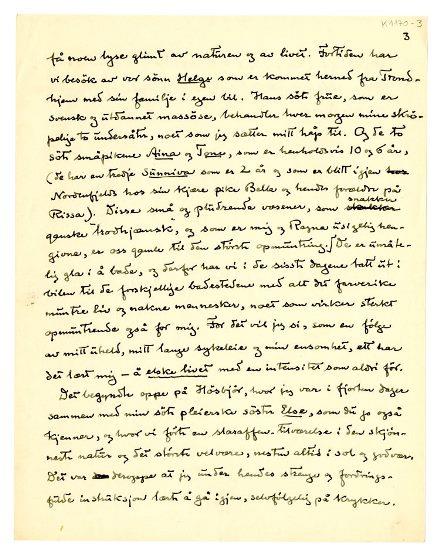 K1170-3
3
få noen lyse glimt av naturen og av livet. Fortiden har
vi besök av vor sönn Helge som er kommet herned fra Trond-
hjem med sin familje i egen bil. Hans söte frue, som er
svensk og utdannet massöse, behandler hver morgen mine skrö-
pelige to undersåtter, noet som jeg setter mitt håp til. Og de to
söte småpikene Aina og Tone, som er henholdsvis 10 og 6 år,
(de har en tredje Sunniva som er 2 år og som er blitt igjen
Nordenfjelds hos sin kjære pike Bella og hendes foreldre på
Rissa). Disse små og pludrende vesener, som snakker
ganske trondhjemsk, og som er mig og Ragna usigelig hen-
givne, er oss gamle til den störste opmuntring. De er umåte-
lig gla i å bade, og derfor har vi i de sisste dagene tatt ut i
bilen til de forskjellige badestedene med alt det farverike
muntre liv og nakne mennesker, noet som virker sterkt
opmuntrende også for mig. For det vil jeg si, som en fölge
av mitt uheld, mitt lange sykeleie og min ensomhet, ett har
det lært mig – å elske livet med en intensitet som aldri för.
Det begynte oppe på Hösbjör, hvor jeg var i fjorten dager
sammen med min söte pleierske söster Else, som du jo også
kjenner, og hvor vi förte en tilværelse i den skjön-
neste natur og det störste velvære, nesten altid i sol og godvær.
Det var deroppe at jeg under hendes strenge og fordrings-
fulde instruksjon lærte å gå igjen, selvfölgelig på krykker.